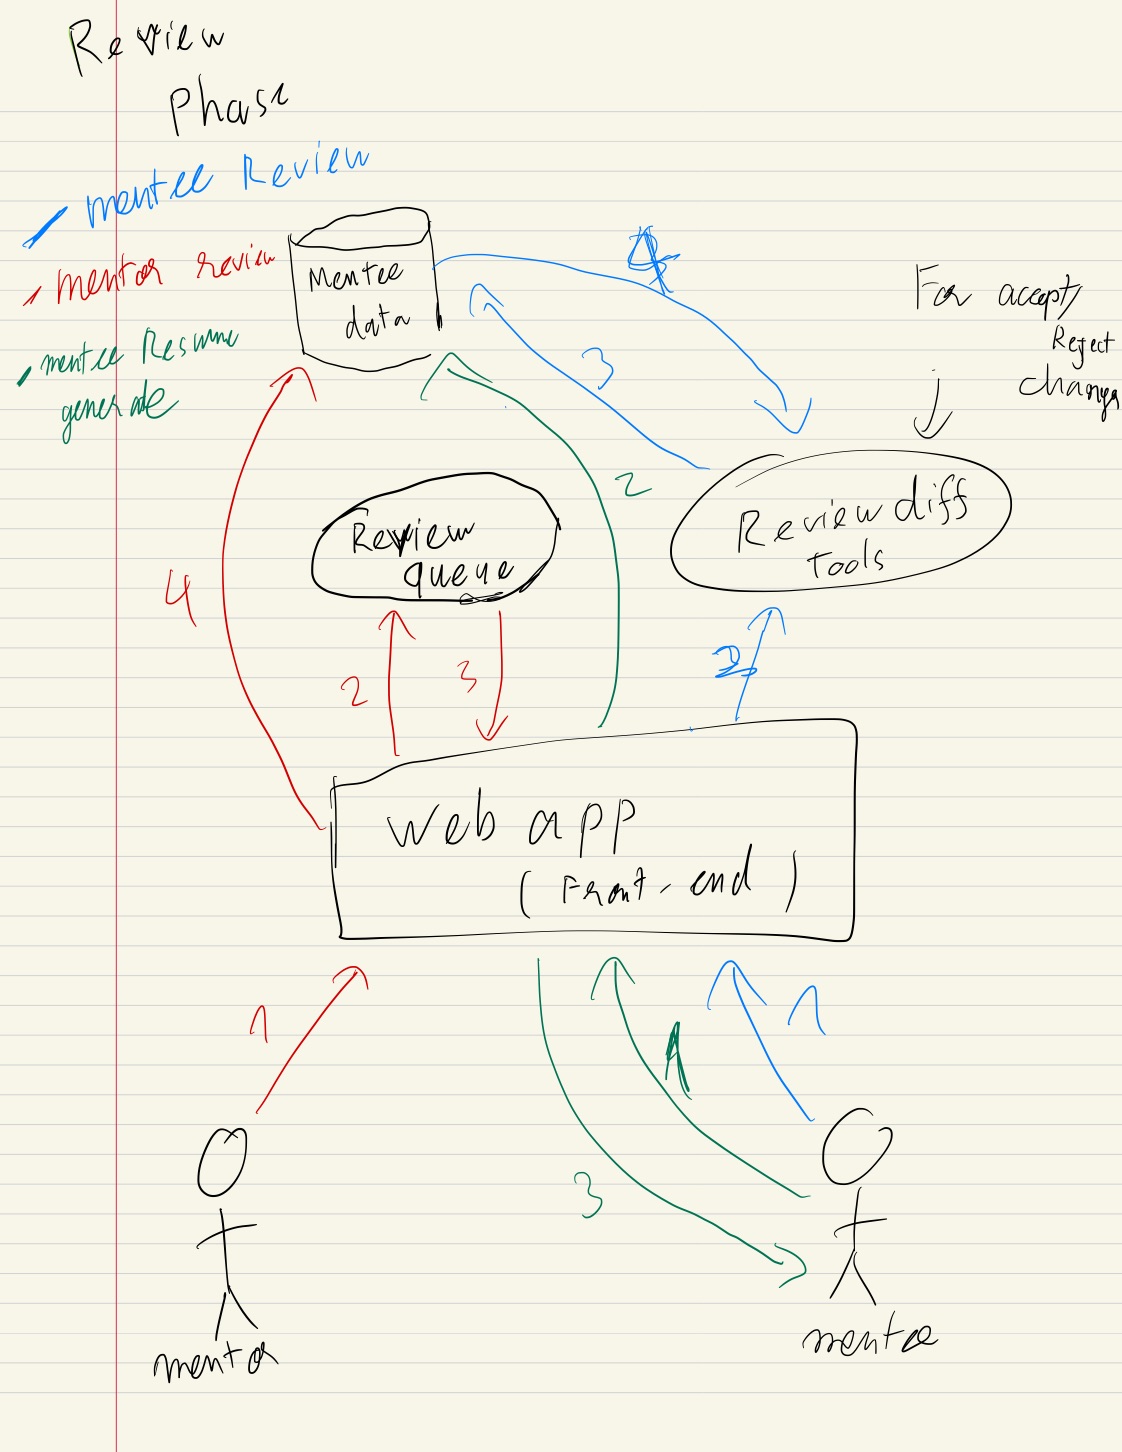 Review
Phase
mentee Review
mentor review
mentee Resume
generate
Mentee
data
4
3
For accept/
Reject
changes
2
Review diff
tools
Review
queue
4
2
3
2
web app
(Front-end)
1
1
1
3
mentor
mentee